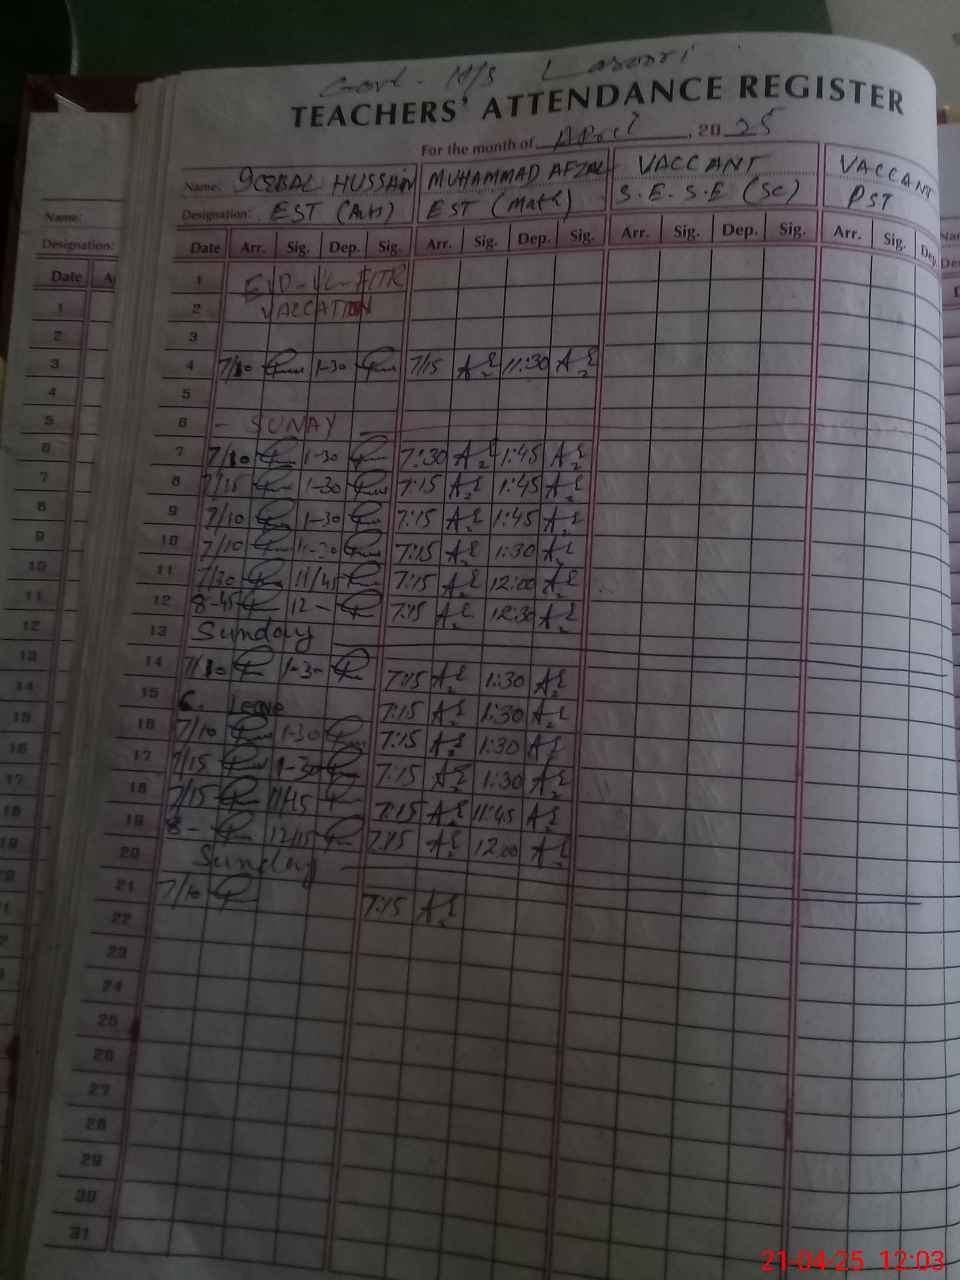 Govt. M/S Lasori
TEACHERS' ATTENDANCE REGISTER
For the month of April, 2025
Name: IQBAL HUSSAIN MUHAMMAD AFZAL VACCANT VACCANT
Designation: EST (Arts) EST (Math) S.E.S.E (Sc) PST
Date Arr. Sig. Dep. Sig. Arr. Sig. Dep. Sig. Arr. Sig. Dep. Sig. Arr. Sig. Dep.
1 EID-UL-FITR
2 VACCATION
3
4 7/10 1-30 7/15 11:30
5
6 - SUNAY -
7 7/10 1-30 7:30 1:45
8 7/15 1-30 7:15 1:45
9 7/10 1-30 7:15 1:45
10 7/10 1-30 7:15 1:30
11 7/30 11/45 7:15 12:00
12 8-45 12- 7:15 12:30
13 Sunday
14 7/10 1-30 7:15 1:30
15 C. Leave 7:15 1:30
16 7/10 1-30 7:15 1:30
17 7/15 1-30 7:15 1:30
18 7/15 11/45 7:15 11:45
19 8- 12/15 7:15 12:00
20 Sunday
21 7/10 7:15
22
23
24
25
26
27
28
29
30
31
Name:
Designation:
Date
1
2
3
4
5
6
7
8
9
10
11
12
13
14
15
16
17
18
19
21-04-25 12:03